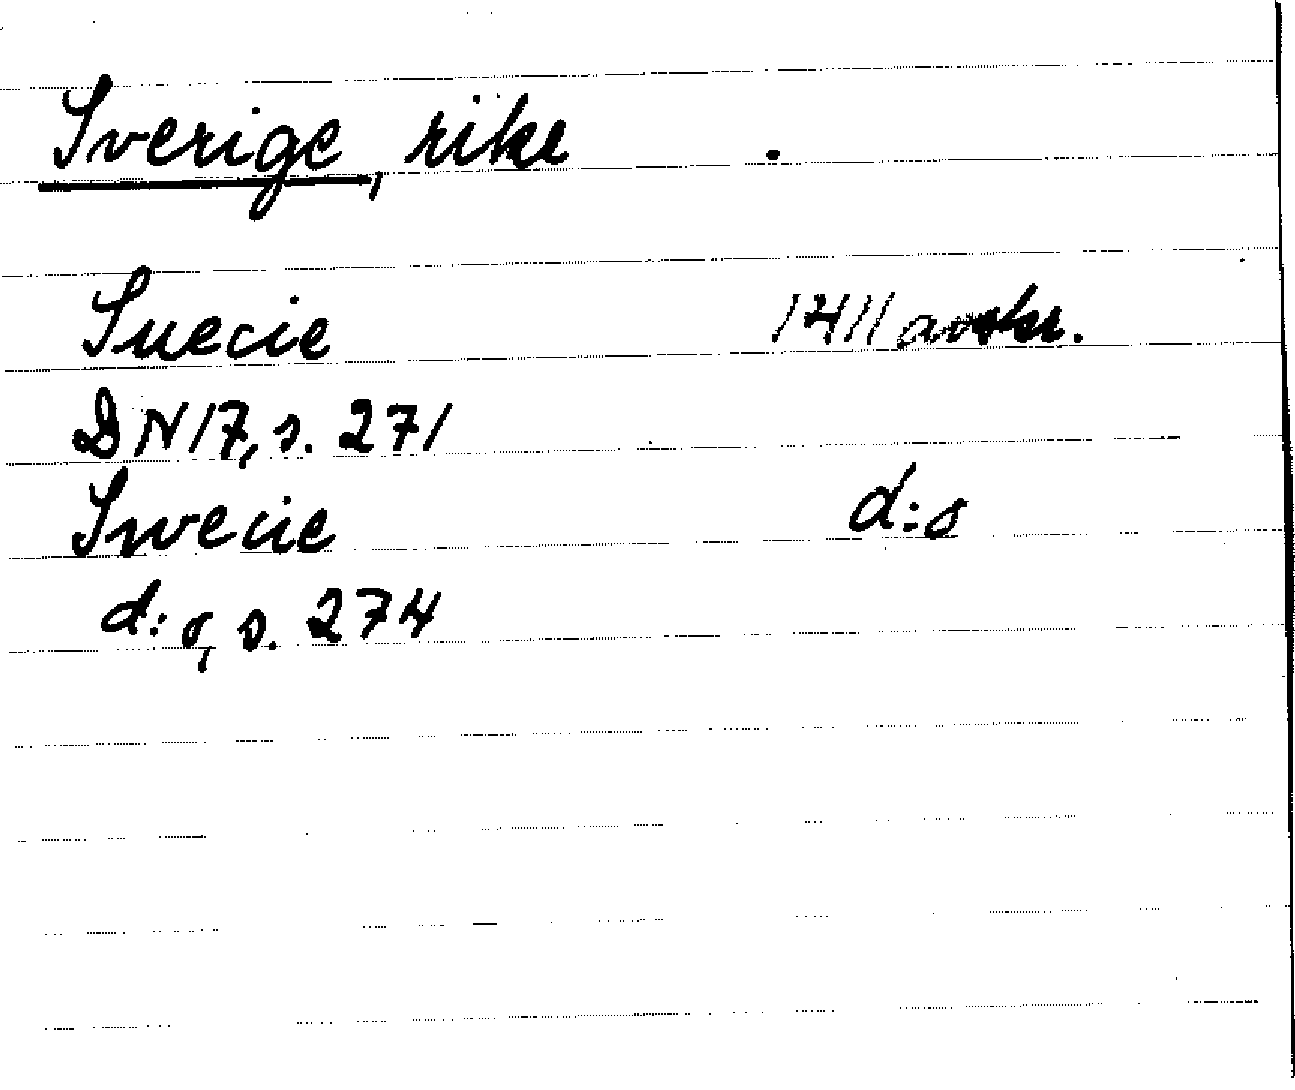 Sverige, rike
Suecie 1411 avskr.
DN 17, s. 271
Swecie d:o
d:o, s. 274